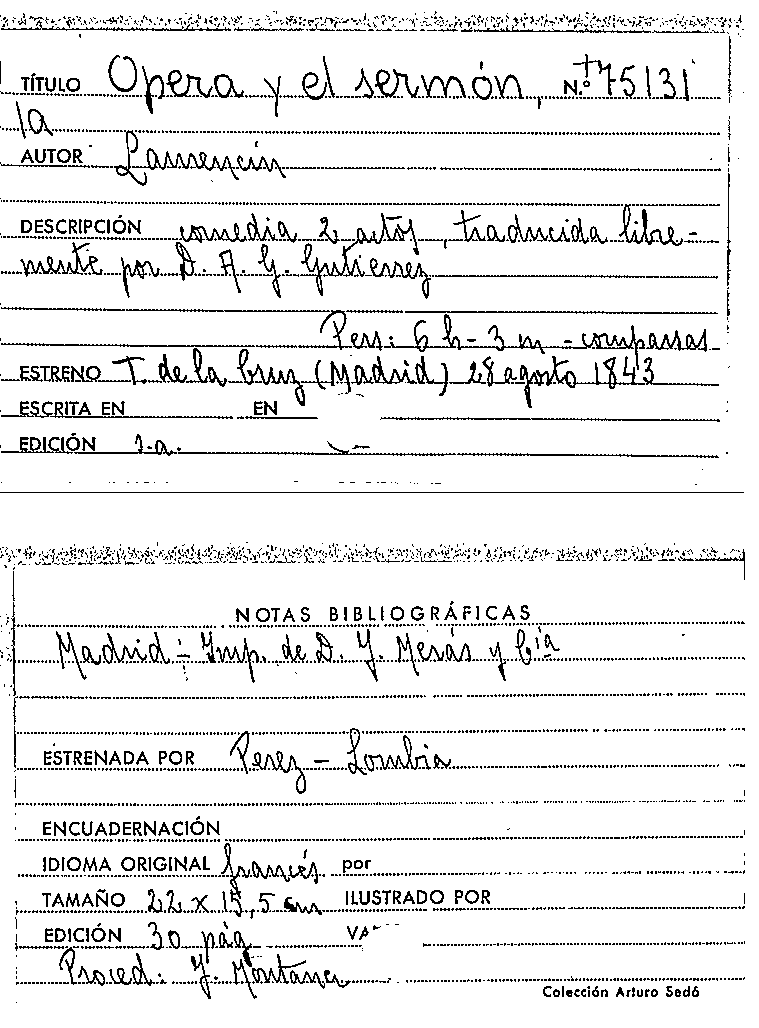 TÍTULO Opera y el sermón, N.º 75131
la
AUTOR Laurencin
DESCRIPCIÓN comedia 2 actos, traducida libre-
mente por D. A. G. Gutierrez
Pers: 6 h - 3 m - comparsas
ESTRENO T. de la Cruz (Madrid) 28 agosto 1843
ESCRITA EN EN
EDICIÓN s.a.
NOTAS BIBLIOGRÁFICAS
Madrid - Imp. de D. J. Merás y Cía
ESTRENADA POR Perez - Lombia
ENCUADERNACIÓN
IDIOMA ORIGINAL francés por
TAMAÑO 22 x 15,5 cm ILUSTRADO POR
EDICIÓN 30 pág
Proced: J. Montaner
Colección Arturo Sedó